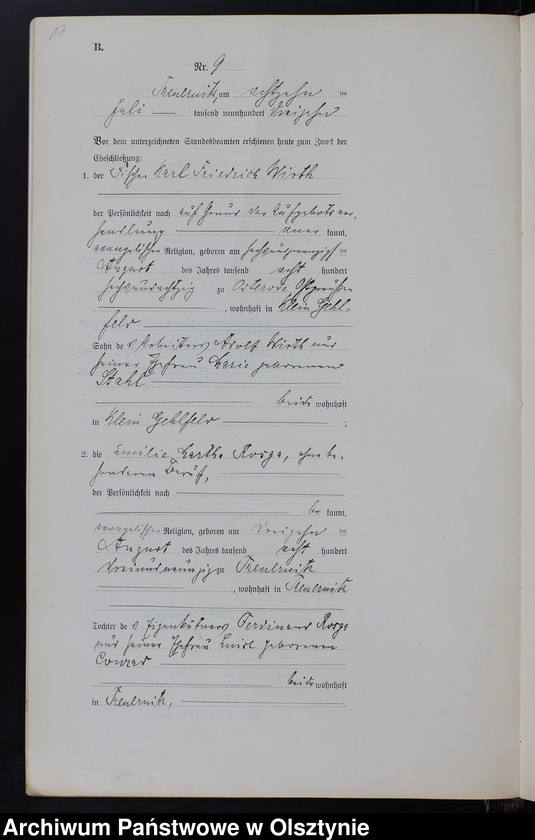 B.
Nr. 9
am achtzehn ten
Juli tausend neunhundert dreizehn
Vor dem unterzeichneten Standesbeamten erschienen heute zum Zweck der
Eheschließung:
1. der Fischer Karl Friedrich Wirth
der Persönlichkeit nach auf Grund der Aufgebotsver-
handlung aner kannt,
evangelischer Religion, geboren am sechsundzwanzigsten
August des Jahres tausend acht hundert
sechsundachtzig zu Osterode, Ostpreußen
, wohnhaft in Klein Gehl-
feld
Sohn des Arbeiters Adolf Wirth und
seiner Ehefrau Marie geborenen
Stahl
beide wohnhaft
in Klein Gehlfeld ;
2. die Emilie Martha Rosga, ohne be-
sonderen Beruf,
der Persönlichkeit nach
be kannt,
evangelischer Religion, geboren am dreizehn ten
August des Jahres tausend acht hundert
dreiundneunzig zu
, wohnhaft in
Tochter des Eigenkätners Ferdinand Rosga
und seiner Ehefrau geborenen
Conrad
beide wohnhaft
in
Archiwum Państwowe w Olsztynie